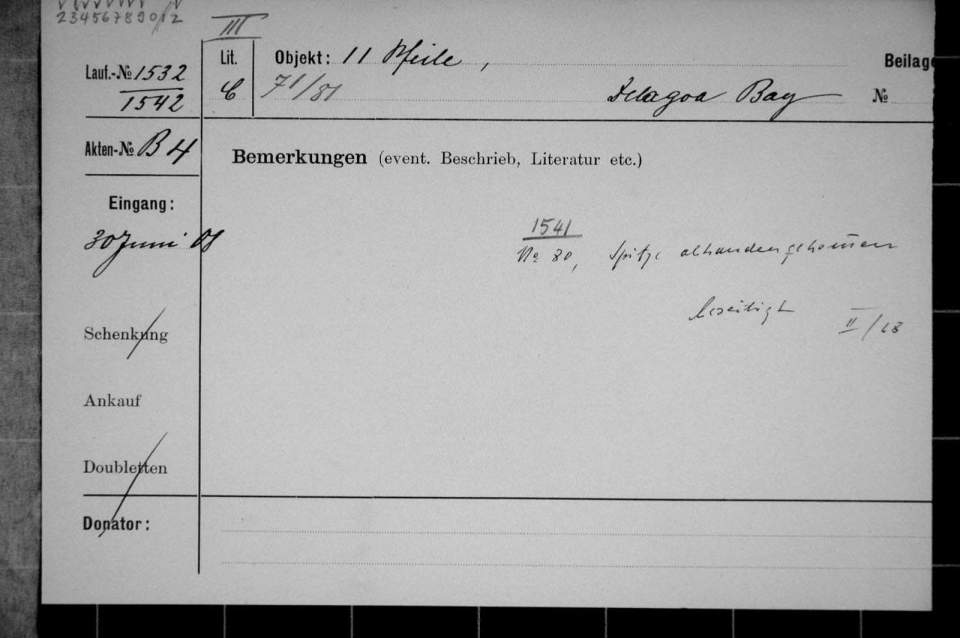 234567890/12
III
Lauf.-№ 1532
1542
Lit.
C
Objekt: 11 Pfeile,
71/81
Delagoa Bay
Beilage
№
Akten-№ B 4
Bemerkungen (event. Beschrieb, Literatur etc.)
Eingang:
30 Juni 01
1541
No 80, Spitze abhandengekommen
beseitigt
II/68
Schenkung
Ankauf
Doubletten
Donator: